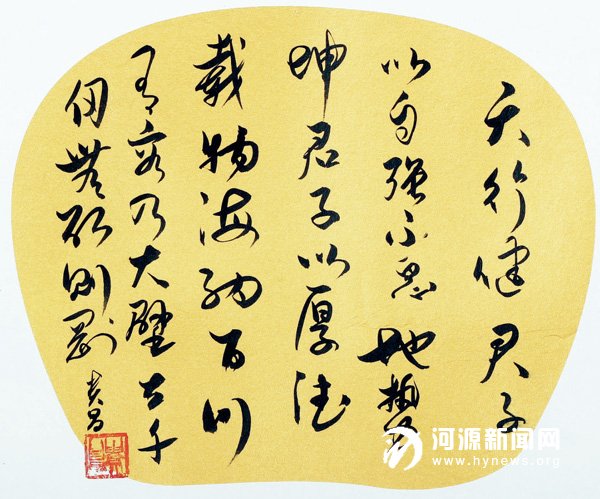 天行健君子
以自强不息地勢
坤君子以厚德
載物海納百川
有容乃大壁立千
仞無欲則剛
河源新闻网
www.hynews.org